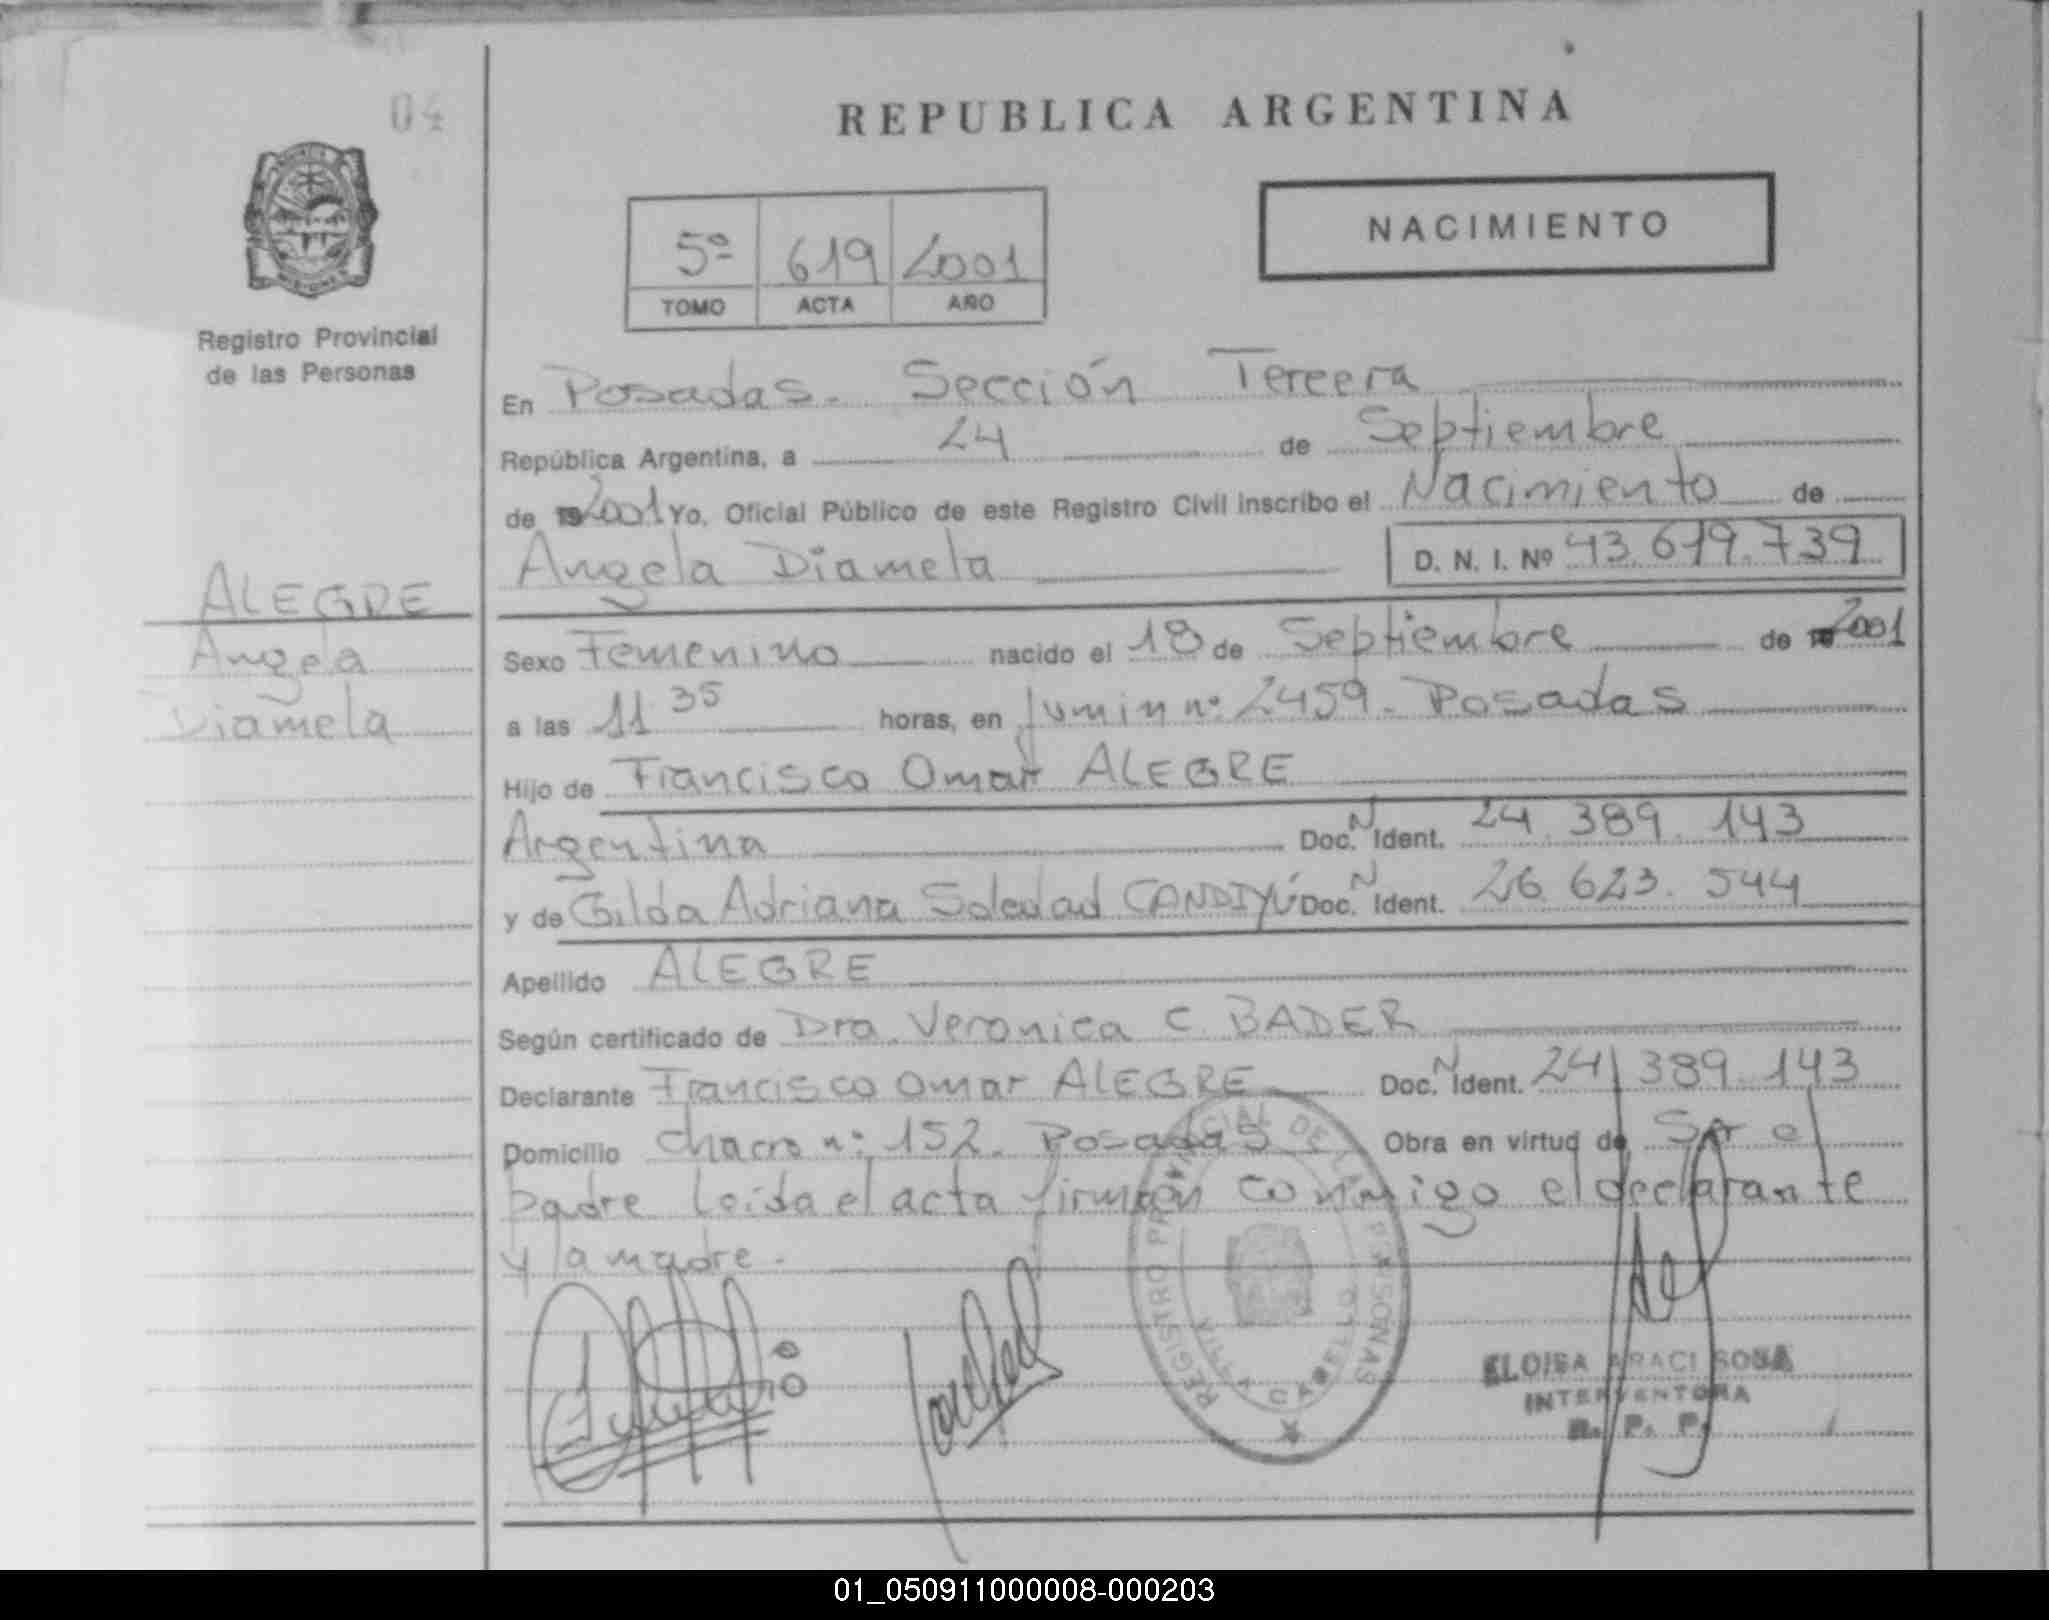 04
REPUBLICA ARGENTINA
NACIMIENTO
5º 619 2001
TOMO ACTA AÑO
Registro Provincial
de las Personas
En Posadas. Sección Tercera
República Argentina, a 24 de Septiembre
de 2001 Yo, Oficial Público de este Registro Civil inscribo el Nacimiento de
Angela Diamela D. N. I. Nº 43.619.739
ALEGRE
Angela
Diamela
Sexo Femenino nacido el 18 de Septiembre de 2001
a las 11 35 horas, en Junin nº 2459. Posadas
Hijo de Francisco Omar ALEGRE
Argentina Doc. N Ident. 24.389.143
y de Gilda Adriana Soledad CANDIYÚ Doc. N Ident. 26.623.544
Apellido ALEGRE
Según certificado de Dra. Veronica C. BADER
Declarante Francisco Omar ALEGRE Doc. N Ident. 24.389.143
Domicilio Chacra nº 152. Posadas Obra en virtud de Ser el
padre Leida el acta firman conmigo el declarante
y la madre.
REGISTRO PROVINCIAL DE LAS PERSONAS
ELOISA ARACI SOSA
INTERVENTORA
R. P. P.
01_050911000008-000203